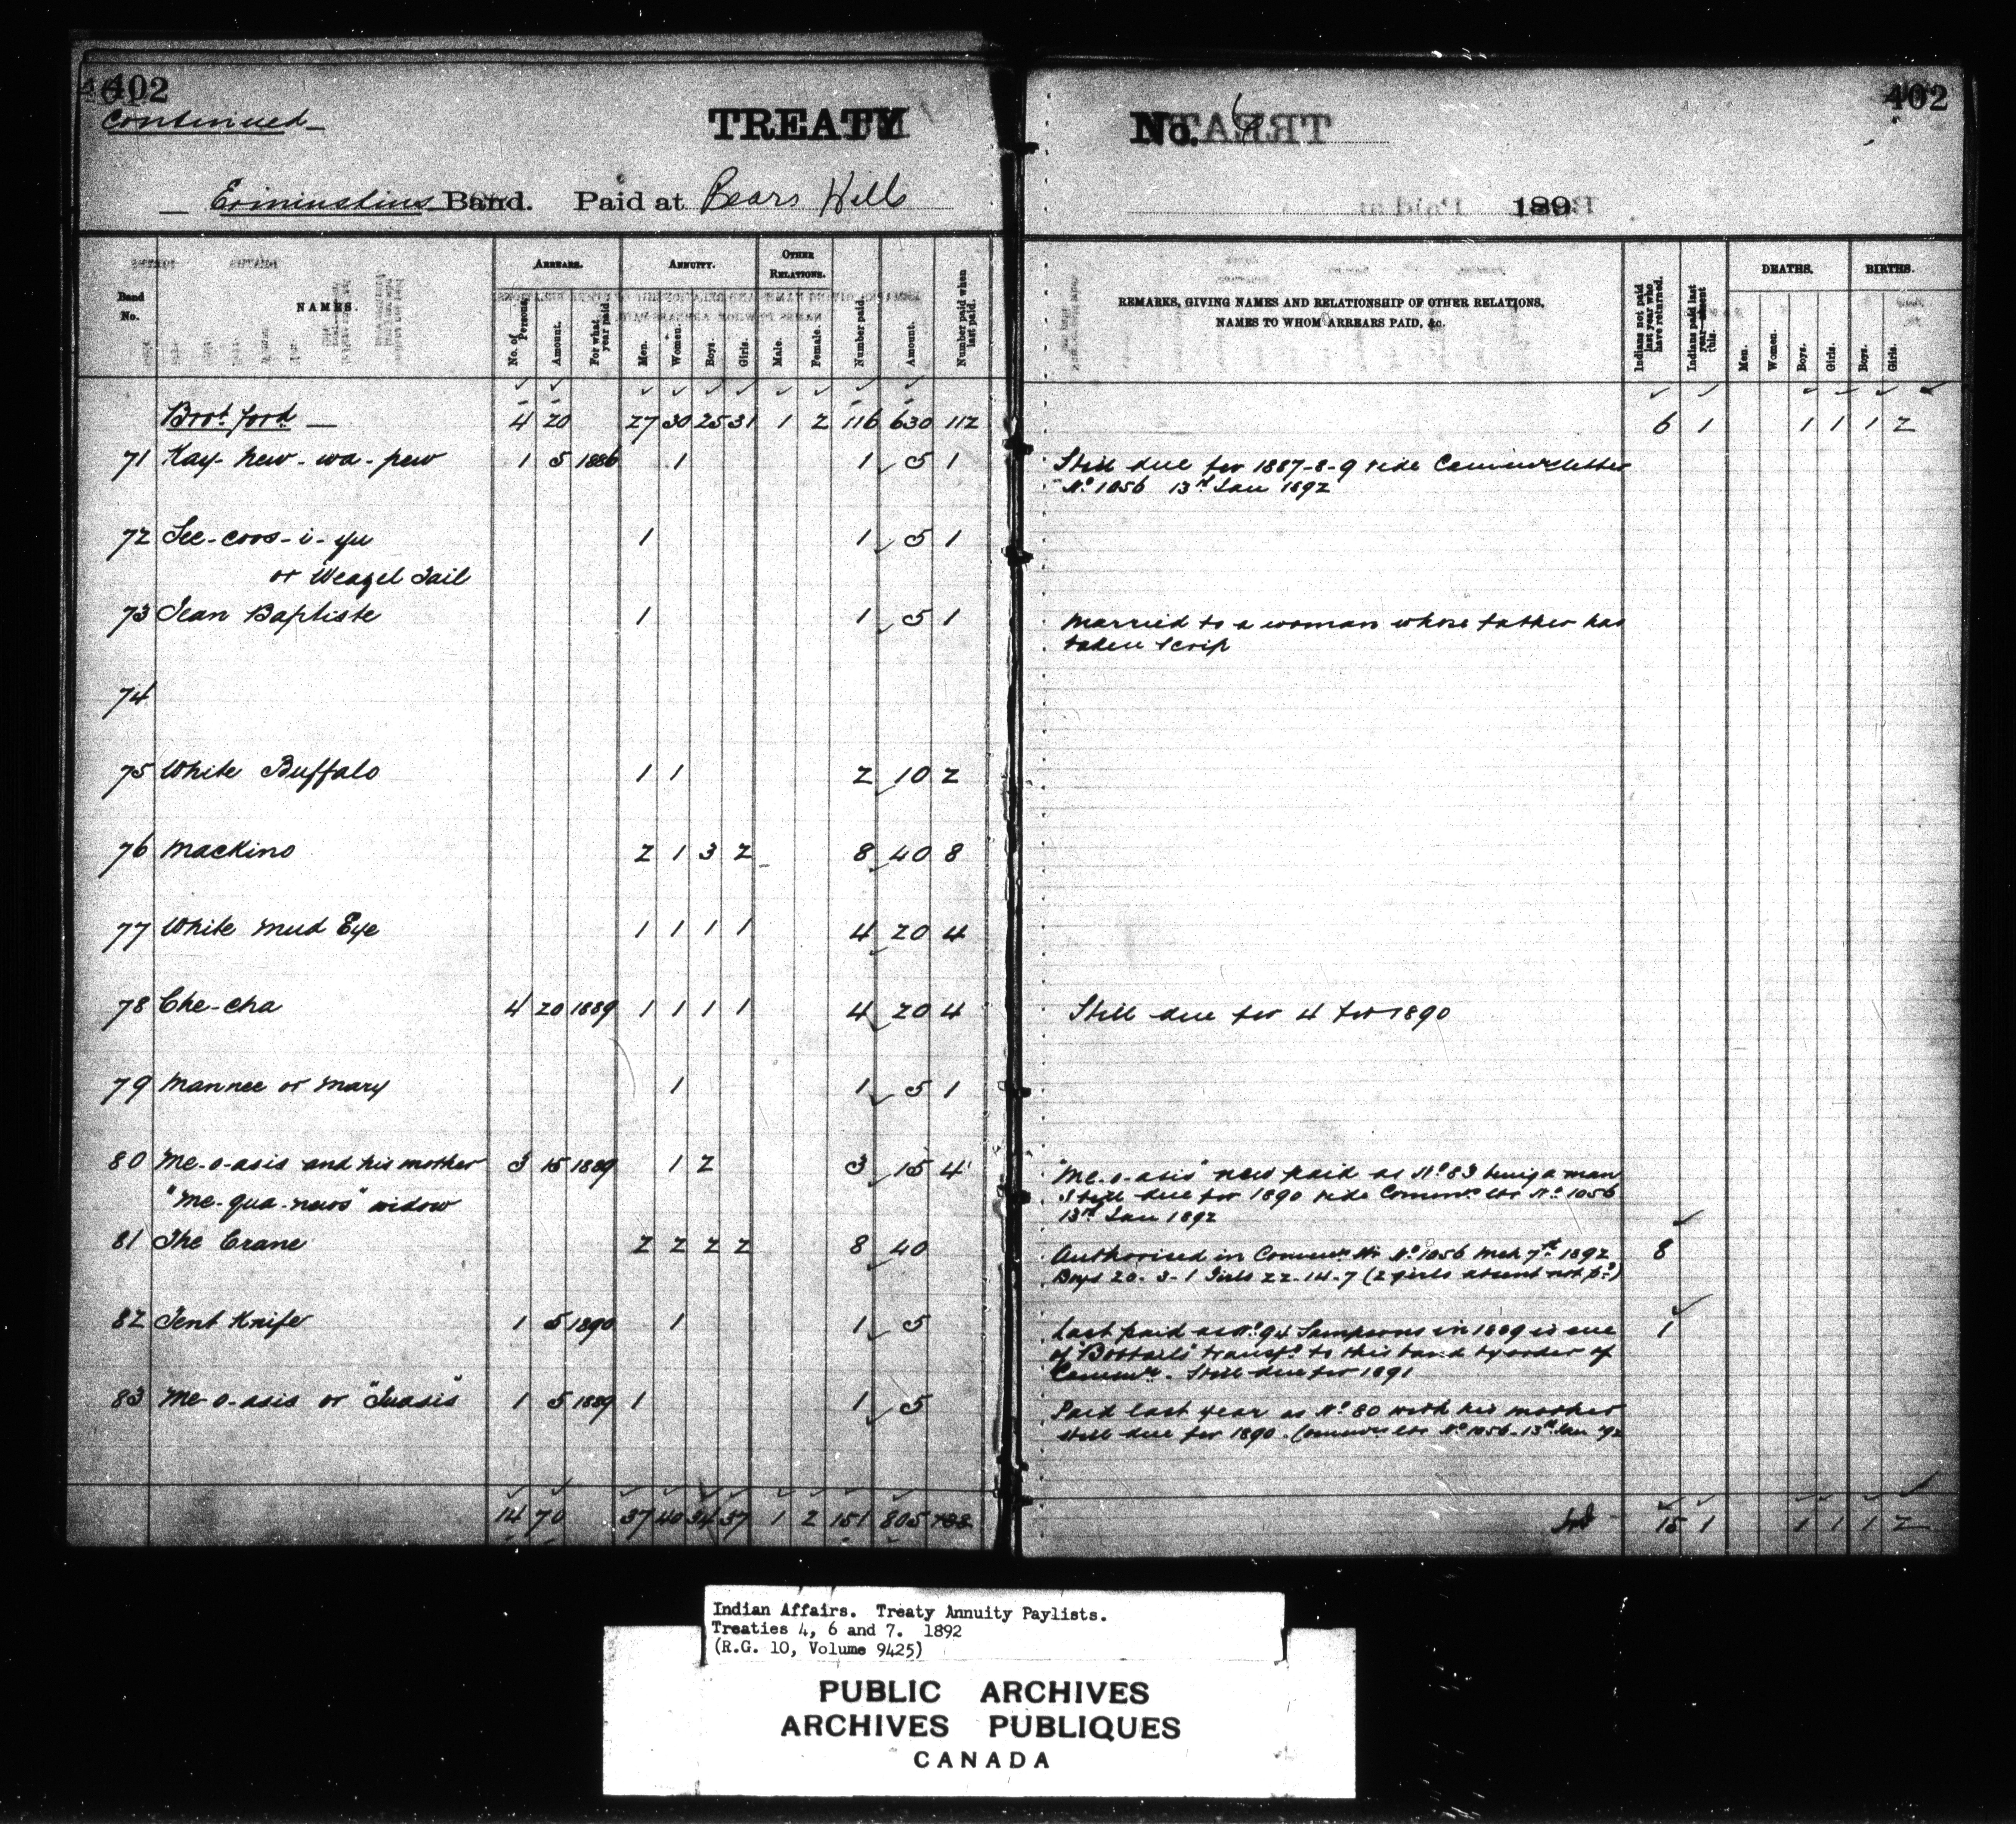 402
Continued
TREATY
No. 6
402
Ermineskins Band. Paid at Bears Hills
189
Band No.
NAMES.
ARREARS.
No. of Persons.
Amount.
For what year paid.
ANNUITY.
Men.
Women.
Boys.
Girls.
OTHER RELATIONS.
Male.
Female.
Number paid.
Amount.
Number paid when last paid.
REMARKS, GIVING NAMES AND RELATIONSHIP OF OTHER RELATIONS,
NAMES TO WHOM ARREARS PAID, &c.
Indians not paid last year who have returned.
Indians paid last year absent this.
DEATHS.
Men.
Women.
Boys.
Girls.
BIRTHS.
Boys.
Girls.
Brot. ford. 4 20 27 30 25 31 1 2 116 630 112 6 1 1 1 1 2
71 Kay-hew-wa-pew 1 5 1886 1 1 5 1 Still due for 1887-8-9 vide Commrs letter
No. 1056 13th Jan 1892
72 See-coos-i-yu 1 1 5 1
or Weazel Tail
73 Jean Baptiste 1 1 5 1 Married to a woman whose father has
taken scrip
74
75 White Buffalo 1 1 2 10 2
76 Mackino 2 1 3 2 8 40 8
77 White Mud Eye 1 1 1 1 4 20 4
78 Che-cha 4 20 1889 1 1 1 1 4 20 4 Still due for 4 for 1890
79 Mannee or Mary 1 1 5 1
80 Me-o-asis and his mother 3 15 1889 1 2 3 15 4 "Me-o-asis" now paid as No. 83 being a man
"Me-qua-news" widow Still due for 1890 vide Commrs ltr No. 1056
13th Jan 1892
81 The Crane 2 2 2 2 8 40 Authorised in Commrs ltr No. 1056 Mch 7th 1892 8
Boys 20-3-1 Girls 22-14-7 (2 girls absent not pd)
82 Tent Knife 1 5 1890 1 1 5 Last paid as No. 94 Sampsons in 1889 is one 1
of "Bobtails" transfd to this band by order of
Commr. Still due for 1891
83 Me-o-asis or "Juasis" 1 5 1889 1 1 5 Paid last year as No. 80 with his mother
still due for 1890. Commrs ltr No. 1056-13th Jan 92
14 70 37 40 34 37 1 2 151 805 138 15 1 1 1 1 2
Indian Affairs. Treaty Annuity Paylists.
Treaties 4, 6 and 7. 1892
(R.G. 10, Volume 9425)
PUBLIC ARCHIVES
ARCHIVES PUBLIQUES
CANADA